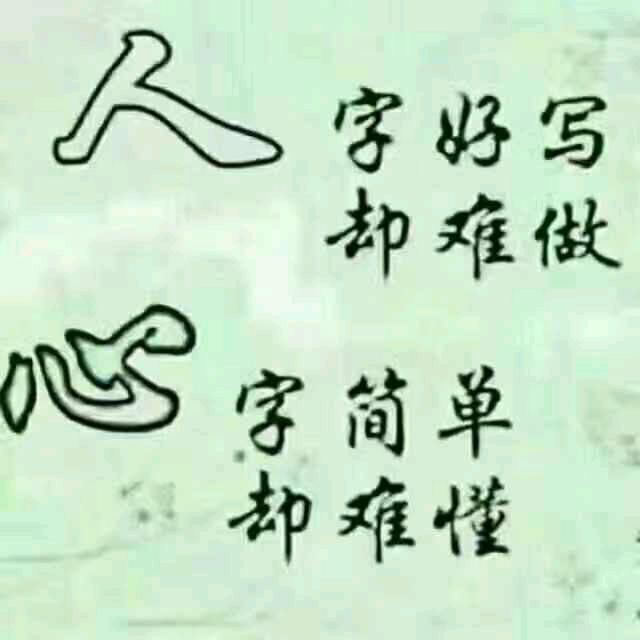 人字好写
却难做
心字简单
却难懂